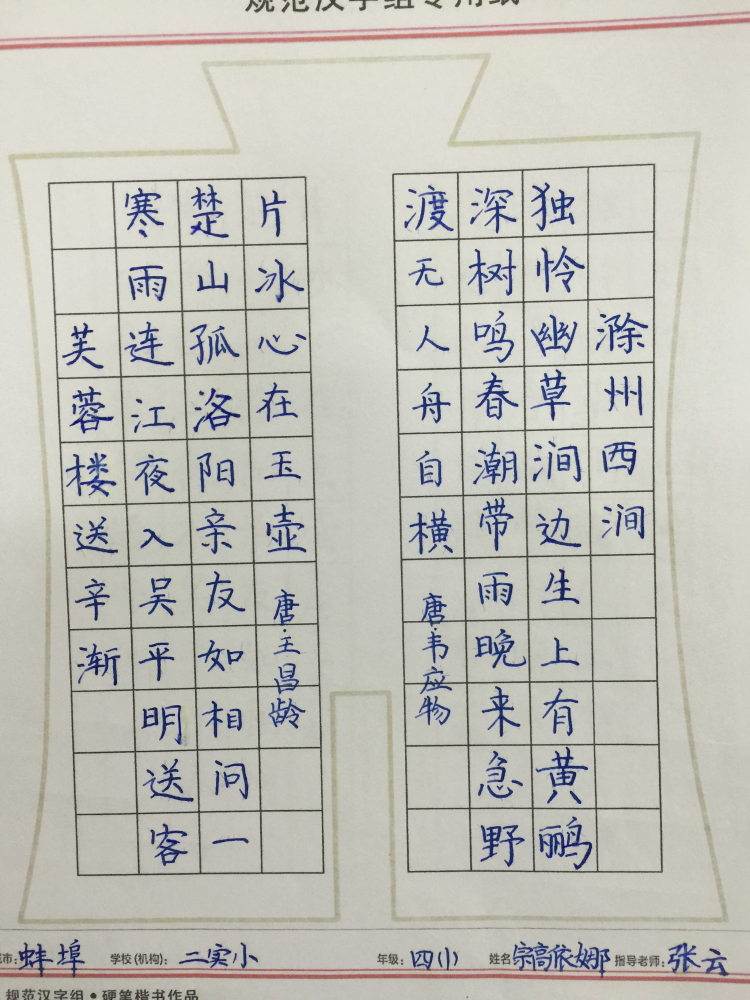 规范汉字组专用纸
滁州西涧
独怜幽草涧边生上有黄鹂
深树鸣春潮带雨晚来急野
渡无人舟自横 唐·韦应物
芙蓉楼送辛渐
寒雨连江夜入吴平明送客
楚山孤洛阳亲友如相问一
片冰心在玉壶 唐·王昌龄
市:蚌埠 学校(机构):二实小 年级:四(1) 姓名 宗高依娜 指导老师:张云
规范汉字组·硬笔楷书作品